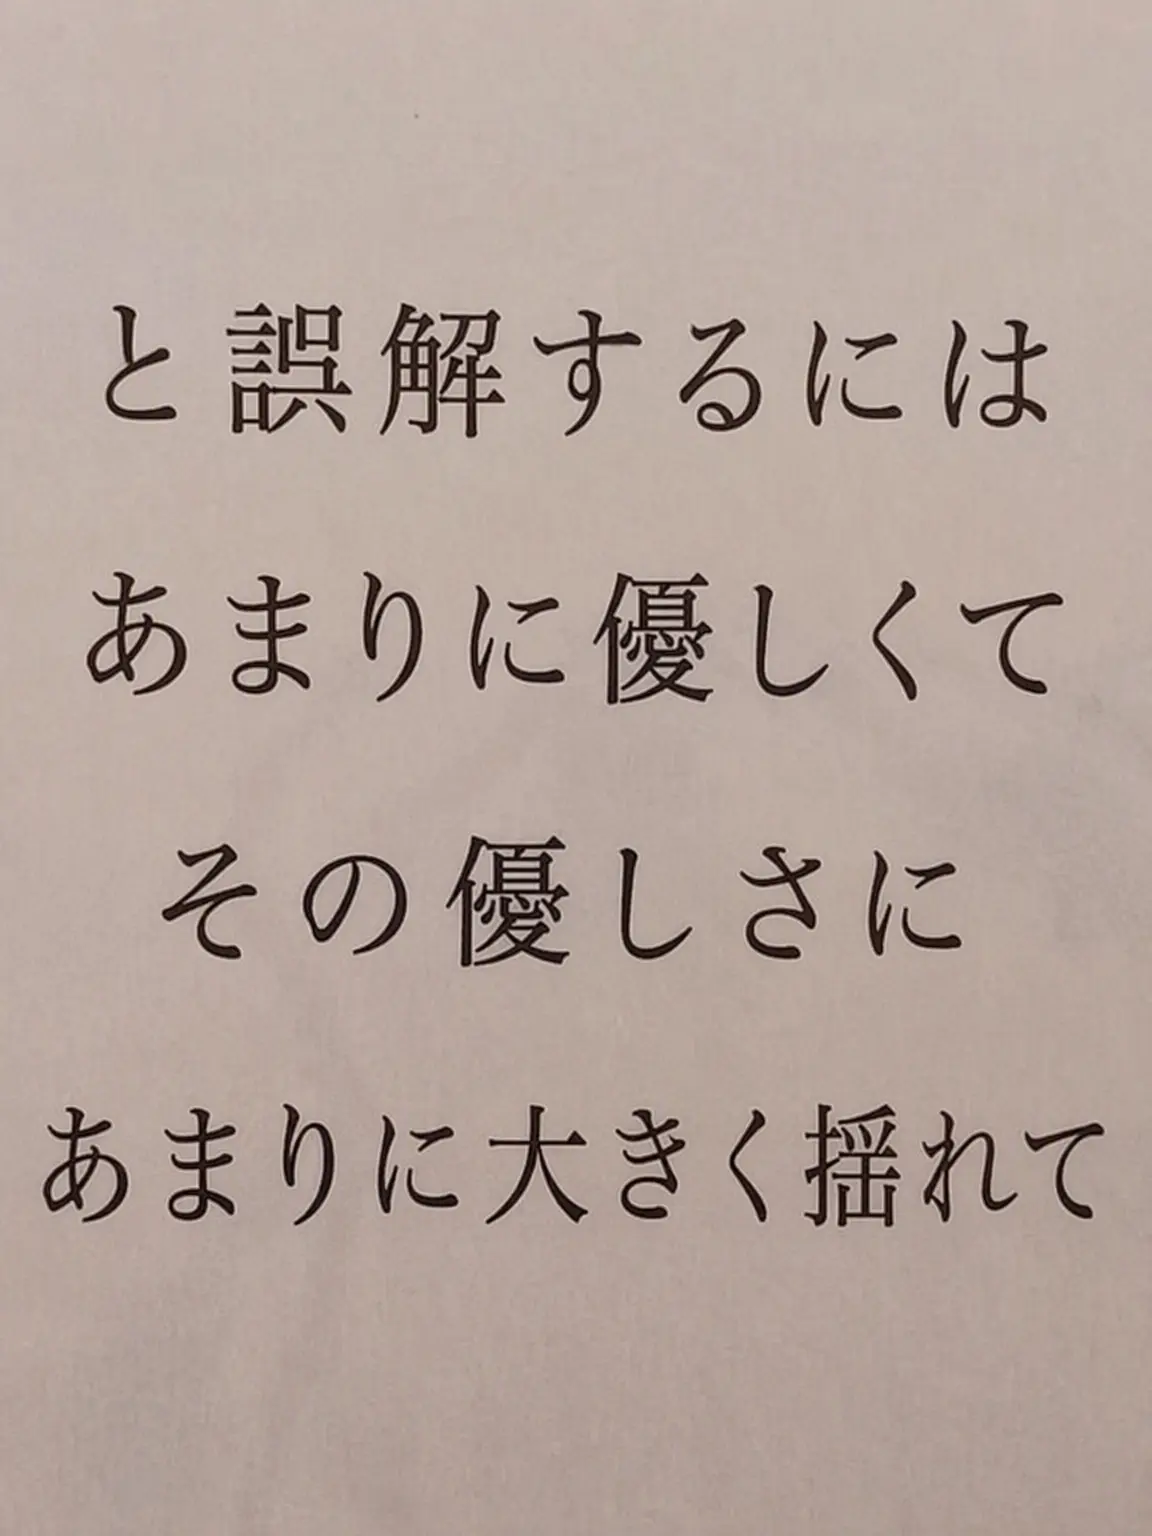 と誤解するには
あまりに優しくて
その優しさに
あまりに大きく揺れて